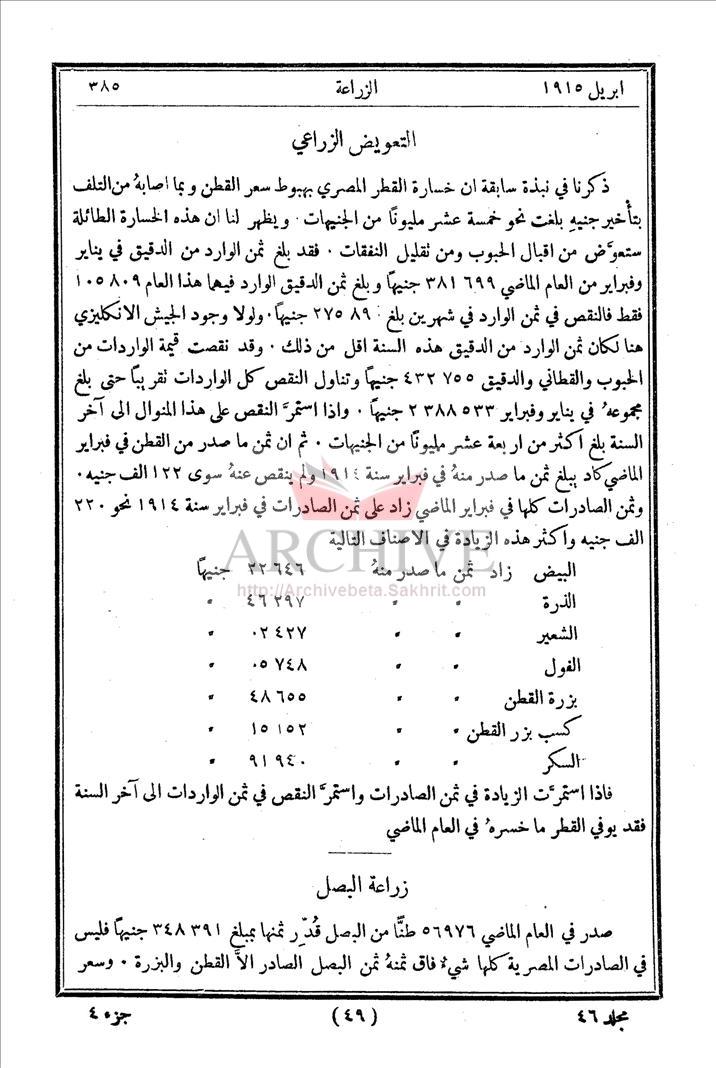 ابريل ١٩١٥ الزراعة ٣٨٥
التعويض الزراعي
ذكرنا في نبذة سابقة ان خسارة القطر المصري بهبوط سعر القطن وبما اصابهُ من التلف
بتأخير جنيهِ بلغت نحو خمسة عشر مليونًا من الجنيهات ٠ ويظهر لنا ان هذه الخسارة الطائلة
ستعوَّض من اقبال الحبوب ومن نقليل النفقات ٠ فقد بلغ ثمن الوارد من الدقيق في يناير
وفبراير من العام الماضي ٣٨١ ٦٩٩ جنيهًا وبلغ ثمن الدقيق الوارد فيهما هذا العام ٨٠٩ ١٠٥
فقط فالنقص في ثمن الوارد في شهرين بلغ ٨٩ ٢٧٥ جنيهًا ٠ ولولا وجود الجيش الانكليزي
هنا لكان ثمن الوارد من الدقيق هذه السنة اقل من ذلك ٠ وقد نقصت قيمة الواردات من
الحبوب والقطاني والدقيق ٧٥٥ ٤٣٢ جنيهًا وتناول النقص كل الواردات نقريبًا حتى بلغ
مجموعهُ في يناير وفبراير ٥٣٣ ٣٨٨ ٢ جنيهًا ٠ واذا استمرَّ النقص على هذا المنوال الى آخر
السنة بلغ اكثر من اربعة عشر مليونًا من الجنيهات ٠ ثم ان ثمن ما صدر من القطن في فبراير
الماضي كاد يبلغ ثمن ما صدر منهُ في فبراير سنة ١٩١٤ ولم ينقص عنهُ سوى ١٢٢ الف جنيه ٠
وثمن الصادرات كلها في فبراير الماضي زاد على ثمن الصادرات في فبراير سنة ١٩١٤ نحو ٢٢٠
الف جنيه واكثر هذه الزيادة في الاصناف التالية
البيض زاد ثمن ما صدر منهُ ٢٢٦٤٦ جنيهًا
الذرة " " ٤٦٢٩٧ "
الشعير " " ٠٢٤٢٧ "
الفول " " ٠٥٧٤٨ "
بزرة القطن " " ٤٨٦٥٥ "
كسب بزر القطن " " ١٥١٥٢ "
السكر " " ٩١٩٤٠ "
فاذا استمرَّت الزيادة في ثمن الصادرات واستمرَّ النقص في ثمن الواردات الى آخر السنة
فقد يوفي القطر ما خسرهُ في العام الماضي
زراعة البصل
صدر في العام الماضي ٥٦٩٧٦ طنًّا من البصل قُدِّر ثمنها بمبلغ ٣٩١ ٣٤٨ جنيهًا فليس
في الصادرات المصرية كلها شيءٌ فاق ثمنهُ ثمن البصل الصادر الاَّ القطن والبزرة ٠ وسعر
مجلد ٤٦ (٤٩) جزء ٤
ARCHIVE
http://Archivebeta.Sakhrit.com